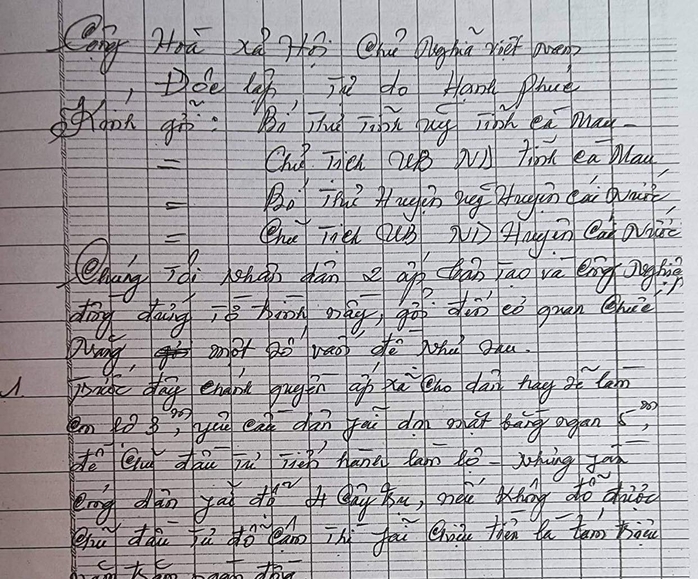 Cộng Hoà xả Hội Chủ Nghĩa việt nam
Độc lập Tự do Hạnh Phúc
Kính gởi: Bí Thư Tỉnh uỷ Tỉnh Cà Mau -
= Chủ Tịch UB ND Tỉnh Cà Mau
= Bí Thư Huyện uỷ Huyện Cái Nước
= Chủ Tịch UB ND Huyện Cái Nước
Chúng Tôi nhân dân 2 ấp Tạo và Công Nghiệp
đồng đứng Tờ trình này, gởi đến cơ quan Chức
Năng một số vấn đề như sau.
1 Trước đây chánh quyền ấp xả cho dân hay sẽ làm
lộ 3m, yêu cầu dân dọn mặt bằng ngan 5m,
để Chủ đầu Tư Tiến hành làm lộ - Nhưng
dân đỗ 4 cây trụ, nếu không đỗ được
Chủ đầu Tư đỗ Thì Chịu tiền là Tám Triệu
năm Trăm ngàn đồng